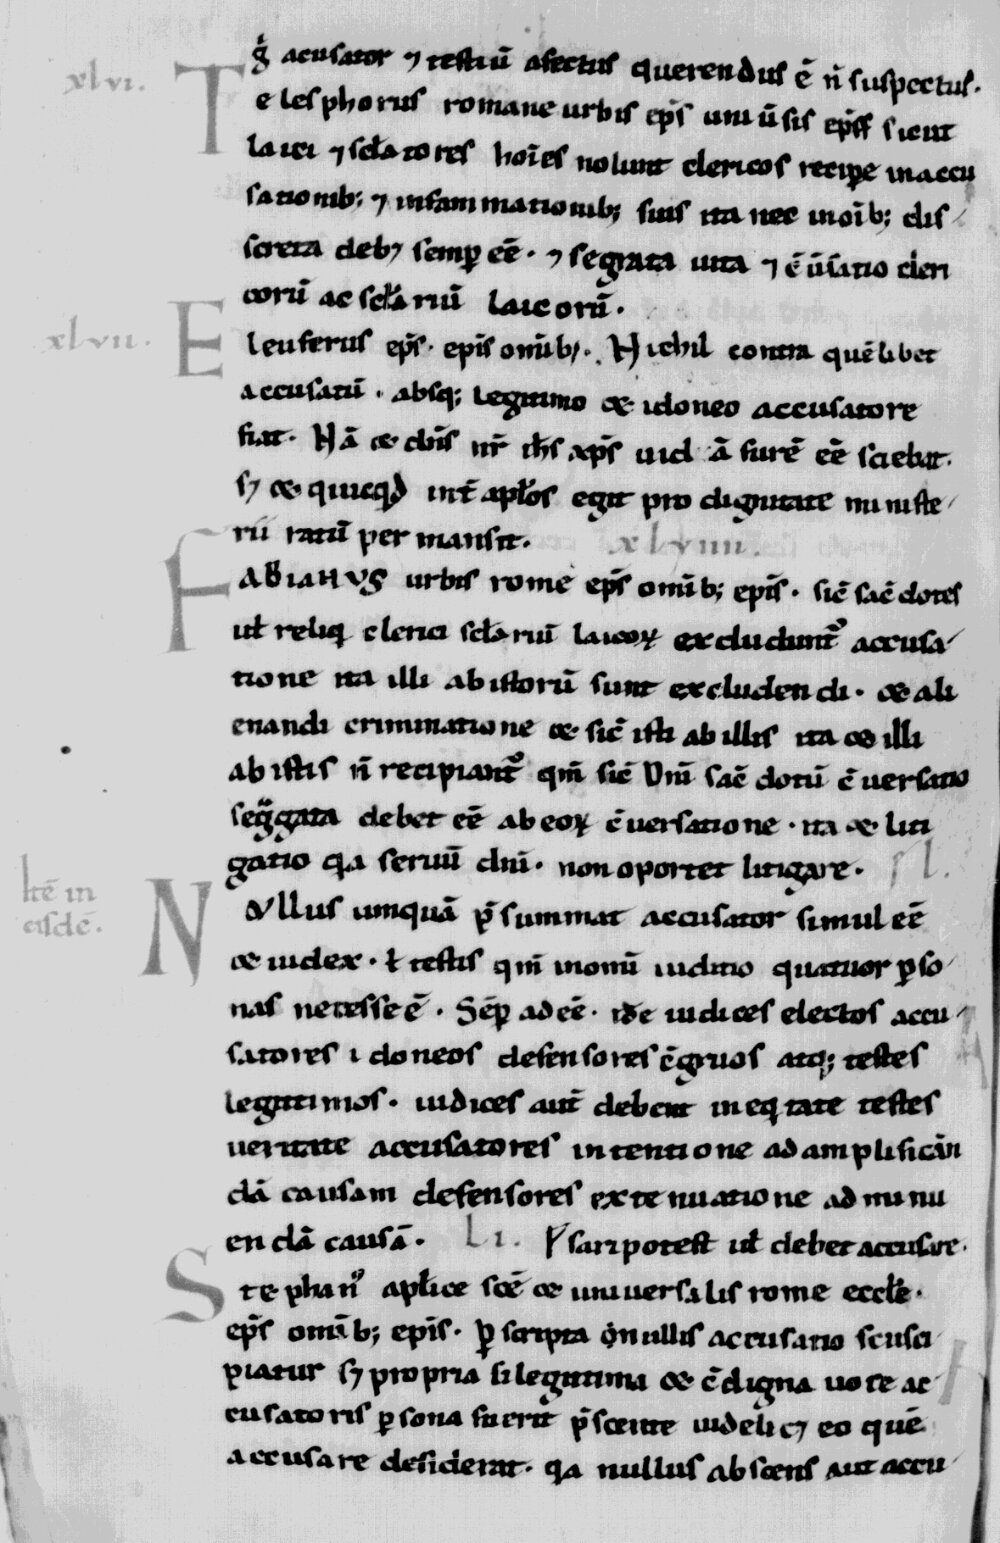 gͥ acusator ⁊ testiū afectus querendus ē ñ suspectus.
xlvi. Telesphorus romane urbis ep̄s uniūsis ep̄is sicut
laici ⁊ sclares hoīes nolunt clericos recipe in accu
sationib; ⁊ infammationib; suis ita nec in oīb; dis
screta deb⁊ semp̲ eē. ⁊ segrata uita ⁊ c̄ūsatio cleri
corū ac sclariū laicorū.
xlvii. Eleuferus ep̄s. ep̄is omīb;. Nichil contra quēlibet
accusatū. absq; legitimo & idoneo accusatore
fiat. Nā & dn̄s nr̄ ih̄s xp̄s iudā furē eē sciebat.
s⁊ & quicqd int̄ apl̄os egit pro dignitate ministe
rii ratū permansit. xlviiii.
FABIANVS urbis rome ep̄s omīb; ep̄is. sic̄ sac̄dotes
ul̄ reliq clerici sclariū laicoꝝ excluduntᷣ accusa
tione ita illi ab istorū sunt excludendi. & ali
enandi criminatione & sic̄ isti ab illis ita & illi
ab istis ñ recipiantᷣ qm̄ sic̄ dn̄i sac̄dotū c̄versatio
segͣgata debet eē ab eoꝝ c̄versatione. ita & liti
gatio qa seruū dn̄i. non oportet litigare. l.
Itē in eisdē. Nullus umquā p̄summat accusator simul eē
& iudex. ł testis qm̄ in omī iuditio quatuor p̲so
nas necesse ē. Sēp̲ adeē. id̄e iudices electos accu
satores idoneos defensores c̄gruos atq; testes
legitimos. iudices aut̄ debent in eq̇tate testes
veritate accusatores intentione ad amplificān
dā causam defensores extenuatione ad minu
endā causā. Li. P̲sari potest ul̄ debet accusare.
Stephanꝰ apl̄ice sc̄e & universalis rome eccl̄e.
ep̄s omīb; ep̄is. P̲ scripta nullis accusatio scusci
piatur s⁊ propria si legitima & c̄digna uoce ac
cusatoris p̲sona fuerit p̄scente uidelic⁊ eo quē
accusare desiderat. qa nullus absens aut accu